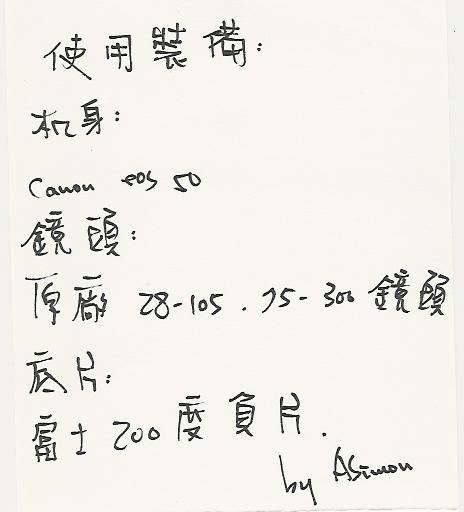 使用裝備:
机身:
Canon eos 50
鏡頭:
原廠 28-105 . 75-300 鏡頭
底片:
富士 200 度負片.
by ASimon